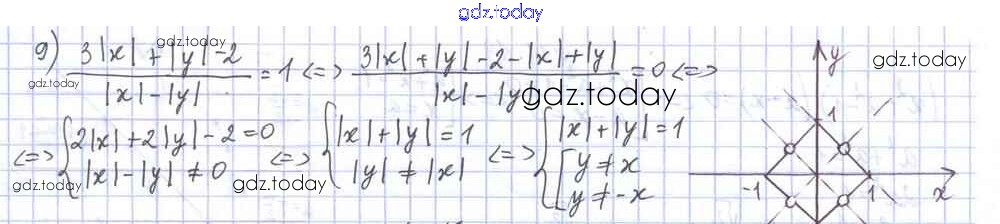 gdz.today
9) (3|x| + |y| - 2)/(|x| - |y|) = 1 <=> (3|x| + |y| - 2 - |x| + |y|)/(|x| - |y|) = 0 <=>
gdz.today
gdz.today
gdz.today
gdz.today
<=> { 2|x| + 2|y| - 2 = 0 <=> { |x| + |y| = 1 <=> { |x| + |y| = 1
|x| - |y| ≠ 0 |y| ≠ |x| [ y ≠ x
y ≠ -x
gdz.today
gdz.today
y
1
-1 1 x